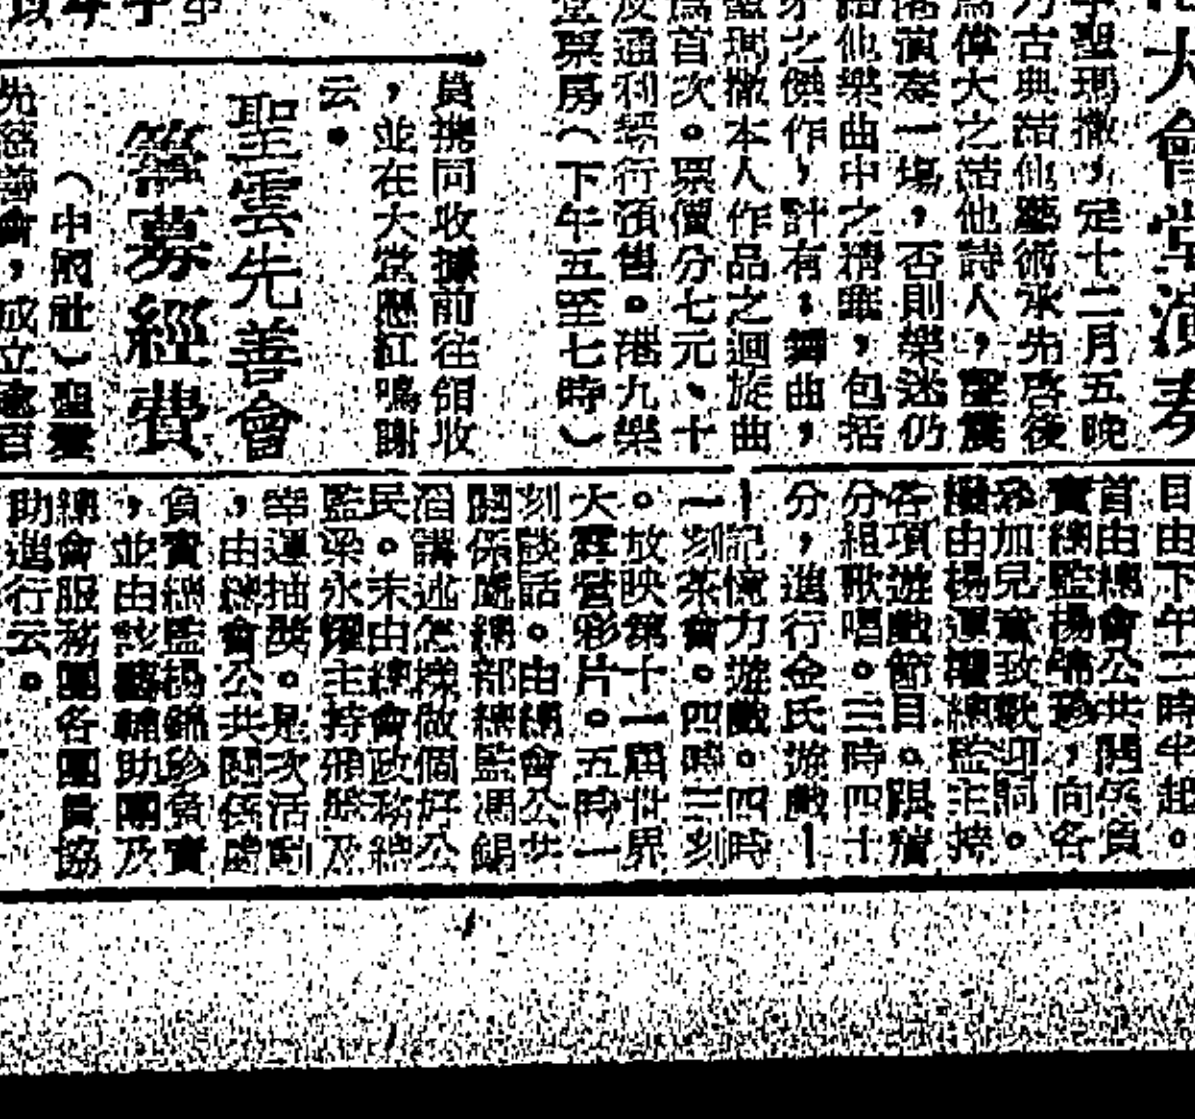 大會堂演奏
聖瑪撒,定十二月五晚
古典結他藝術承先啓後
爲偉大之結他詩人,
演奏一場,否則樂迷仍
結他樂曲中之精雖,包括
之傑作,計有:舞曲,
瑪撒本人作品之迴旋曲
爲首次。票價分七元、十
及通利琴行預售。港九樂
堂票房(下午五至七時)
員携同收據前往領收
,並在大堂懸紅鳴謝
云。
聖雲先善會
籌募經費
(中國社)聖雲
先慈善會,成立逾百
目由下午二時半起。
首由總會公共關係負
責總監楊錦珍,向各
參加兒童致歡迎詞。
繼由楊運權總監主持
各項遊戲節目。跟着
分組歌唱。三時四十
分,進行金氏遊戲—
—記憶力遊戲。四時
一刻茶會。四時三刻
。放映第十一屆世界
大露營彩片。五時一
刻談話。由總會公共
關係處總部總監馮錫
滔講述怎樣做個好公
民。末由總會政務總
監梁永燿主持頒獎及
幸運抽獎。是次活動
,由總會公共關係處
負責總監楊錦珍負責
,並由技藝輔助團及
總會服務團各團員協
助進行云。